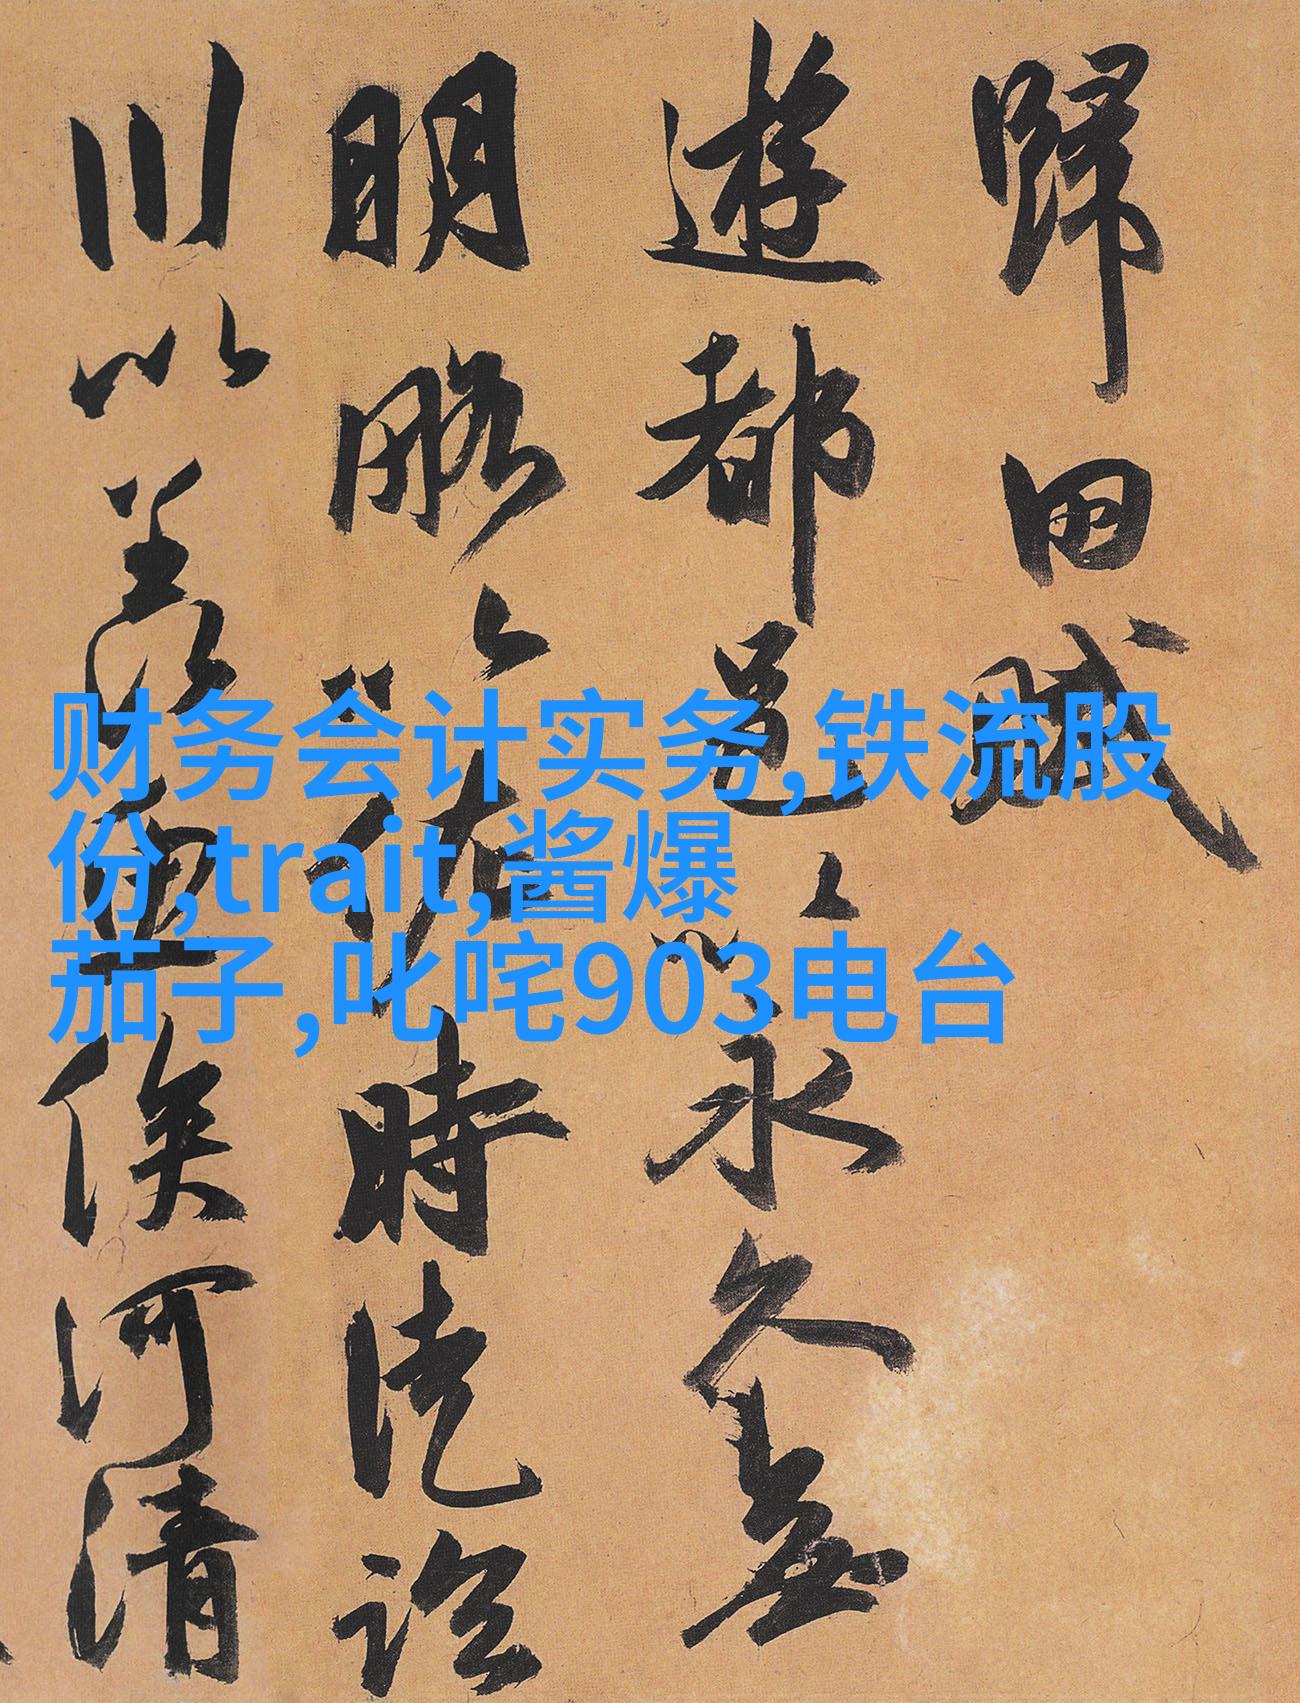 歸田賦
遊都邑以永久無
明略以佐時徒臨
川以羨魚俟河清
财务会计实务,铁流股
份,trait,酱爆
茄子,叱咤903电台